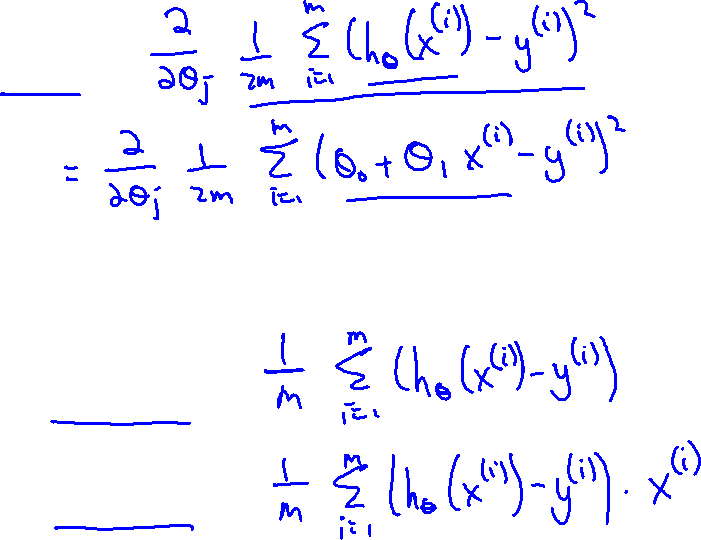 ∂/∂θⱼ 1/2m Σᵢ₌₁ᵐ (h_θ(x⁽ⁱ⁾) - y⁽ⁱ⁾)²
= ∂/∂θⱼ 1/2m Σᵢ₌₁ᵐ (θ₀ + θ₁ x⁽ⁱ⁾ - y⁽ⁱ⁾)²
1/m Σᵢ₌₁ᵐ (h_θ(x⁽ⁱ⁾) - y⁽ⁱ⁾)
1/m Σᵢ₌₁ᵐ (h_θ(x⁽ⁱ⁾) - y⁽ⁱ⁾) · x⁽ⁱ⁾